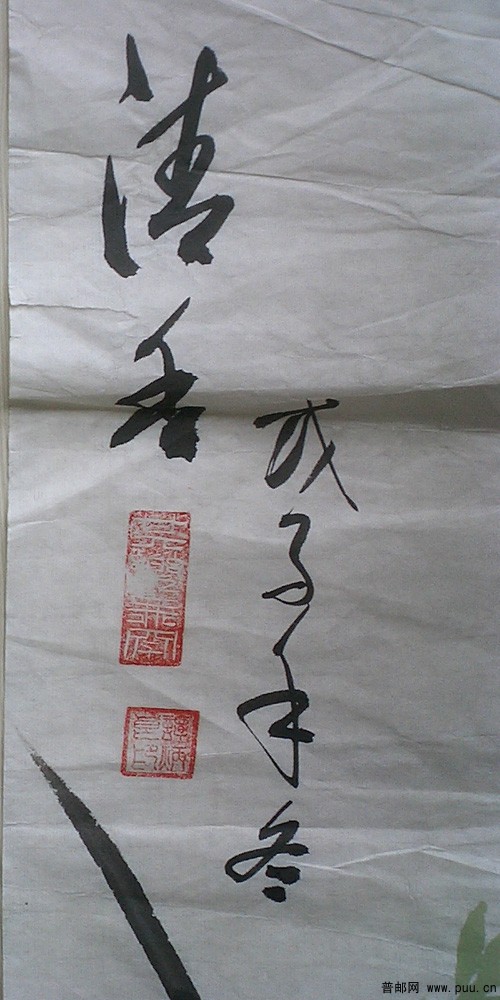 清香
戊子年冬
普邮网 www.puu.cn